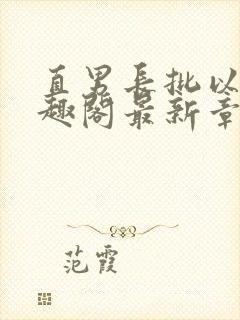 直男长批以
趣阁最新章
范霞